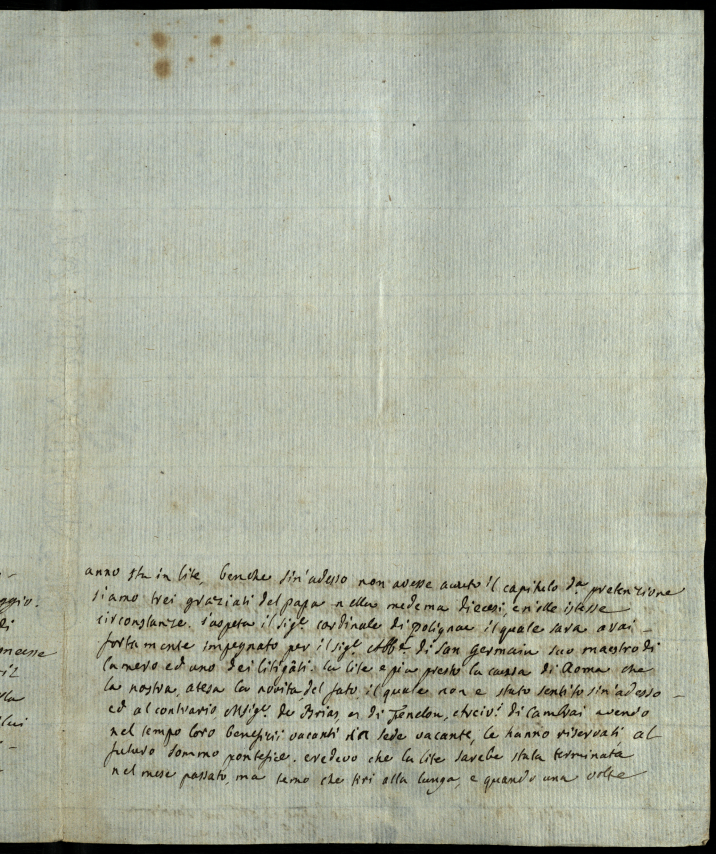 anno sta in lite, benche sin'adesso non avesse auuto il capitulo d.ª pretenzione
siamo trei graziati del papa nella medema diecesi, e nelle istesse
circonstanze. s'aspeta il sig.r cardinale di polignac il quale sara avai-
fortamente impegnato per il sig.r Abb.e di san Germain suo maestro di
camero ed uno dei litigati. la lite e piu presto la caussa di Roma che
la nostra, atesa la novita del fato il quale non e stato sentito sin'adesso
ed al contrario Msig.r de Brias, e di Fenelon, arciv.i di Cambrai avendo
nel tempo loro beneficii vacanti sede vacante, le hanno riservati al
futuro sommo pontefice. credevo che la lite sarebe stata terminata
nel mese passato, ma temo che tiri alla lunga, e quando una volte